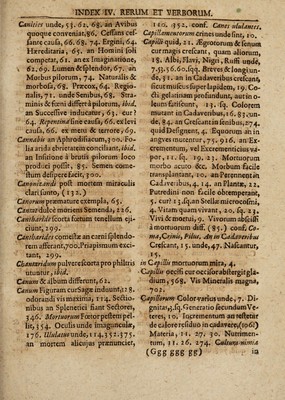 INDEX IV. RERUM ET VERBORUM.
Canities unde, 53. 62. 68. an Avibus
quoque conveniat, 86. Cessans ces-
sante causa, 66. 68. 74. Ergini, 64.
Hæreditaria, 65. an Homini soli
competat, 61. an ex Imaginatione,
62. 69. Lumen & splendor, 67. an
Morbus pilorum, 74. Naturalis &
morbosa, 68. Præcox, 64. Regio-
nalis, 71. unde Senibus, 68. Stra-
minis & fœni differt à pilorum, ibid.
an Successive inducatur, 63. cur?
64. Repentina sine causa, 66. ex levi
causa, 66. ex metu & terrore, 69.
Cannabis an Aphrodifiacum, 300. Fo-
lia gelatinis obrietatem conciliant, ibid.
an Infusione à brutis pilorum loco
produci possit, 85. Semen come-
stum despere facit, 300.
Canonizandi post mortem miraculis
clari sunto, (132.)
Canorum præmature exempla, 65.
Canturdulce mortiens Semenda, 126.
Cantharides scorta foetum tenellum eji-
ciunt, 299.
Cantharides comestæ an carni splendo-
rem afferant, 700. Priapismum exci-
tant, 299.
Chantaridum pulvere scorta pro philtris
utuntur, ibid.
Canum & album differunt, 62.
Canum Figura cur Sage induant, 128.
odorandi vis maxima, 114. Sectio-
nibus an Splenetici fiant Sectores,
346. Mortuorum Fœtor pestem pel-
lit, 354. Oculis unde imagunculæ,
176. Ululatus unde, 114. 352. 375.
an mortem alicujus prænunciet,
110. 452. conf. Canes ululantes.
Capillamentorum crines unde fint, 10.
Capilli quid, 21. Ægrotorum & senum
cur magis crescant, quam aliorum,
18. Albi, Flavi, Nigri, Ruffi unde,
7. 53. 55. 60. sqq. Breves & longi un-
de, 31. an in Cadaveribus crescant,
sicut muscus super lapidem, 19. Co-
dici gelatinos profundunt, auris o-
leum fatiscunt, 13. sq. Colorem
mutant in Cadaveribus, 16. 83. vn-
de, 84. an Crescant in senibus, 274.
quid Designent, 4. Equorum an in
angues mutentur, 75. 916. an Ex-
crementum, vel Excrementicius va-
por, 12. sq. 19. 23. Mortuorum
morbo acuto &c. Morbum facile
transplantant, 10. an Perennent in
Cadaveribus, 4. 14. an Plantæ, 22.
Putredini non facile obtemperant,
5. cur? 13. sq. an Stellæ microcosmi,
4. Vitam quam vivant, 20. sq. 23.
Vivi & mortui, 9. Vivorum abscissi
à mortuorum diff. (85.) conf. Co-
ma, Crines, Pilus. An in Cadaveribus
Crescant, 15. unde, 47. Nascantur,
15.
in Capillis mortuorum mira, 4.
Capillis occisi cur occisor abstergit gla-
dium, 568. Vis Mineralis magna,
702.
Capillorum Color varius unde, 7. Di-
gnitas, 4. sq. Generatio secundum Ve-
teres, 10. Incrementum an testetur
de calore residuo in cadavere, (106)
Materia, 11. 27. 30. Nutrimen-
tum, 11. 26. 274. Cultura nimia
(Ggg ggg gg) in